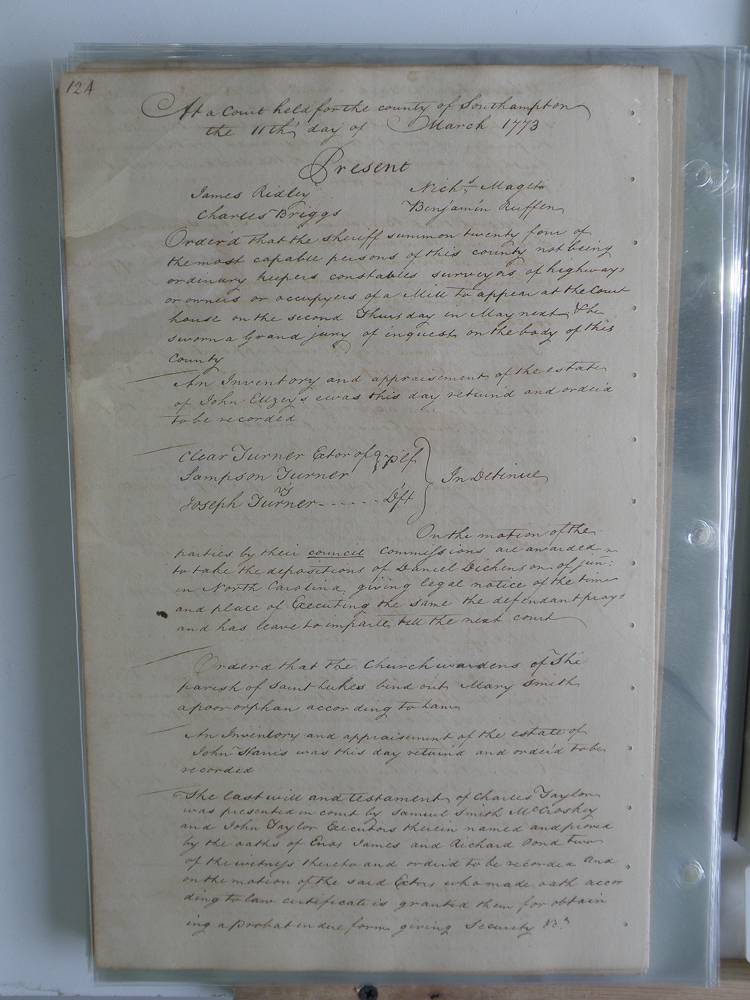 124
At a Court held for the county of Southampton
the 11th day of March 1773
Present
James Ridley Nichs. Maget
Charles Briggs Benjamin Ruffin
Order'd that the sheriff summon twenty four of
the most capable persons of this county not being
ordinary keepers constables surveyors of highways
or owners or occupyers of a Mill to appear at the Court
house on the second Thursday in May next & be
sworn a Grand jury of inquest on the body of this
County
An Inventory and appraisement of the estate
of John was this day return'd and order'd
to be recorded
Clear Turner Extor of plf
Sampson Turner
vs In Detinue
Joseph Turner - - - - - - Dft
On the motion of the
parties by their council Commissions are awarded
to take the depositions of Daniel Dickinson of jun:
in North Carolina giving legal notice of the time
and place of Executing the same the defendant prays
and has leave to imparle till the next court
Order'd that the Churchwardens of The
parish of Saint Lukes bind out Mary Smith
a poor orphan according to Law
An Inventory and appraisement of the estate of
John Harris was this day return'd and order'd to be
recorded
The last will and testament of Charles Taylor
was presented in court by Samuel Smith McCroskey
and John Taylor Executors therein named and proved
by the oaths of Enos James and Richard Pond two
of the witness thereto and order'd to be recorded And
on the motion of the said Extors who made oath accor
ding to law certificate is granted them for obtain
ing a Probat in due form giving Security &c.